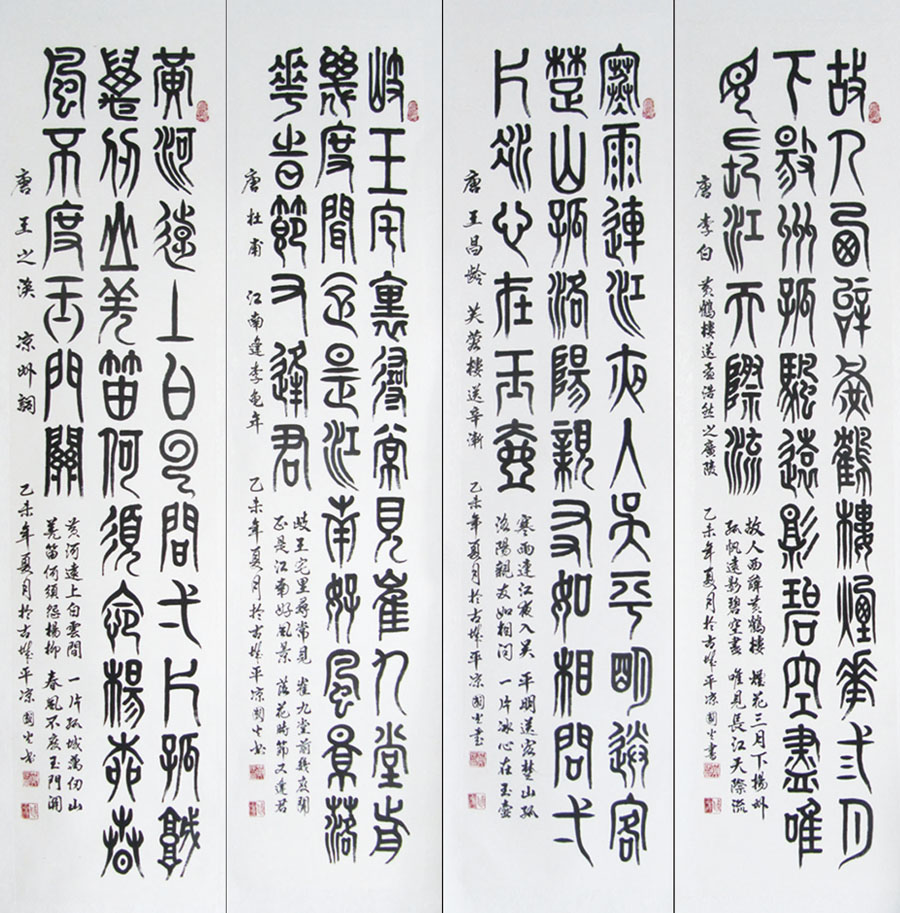 故人西辭黃鶴樓煙花三月
下揚州孤帆遠影碧空盡唯
見長江天際流
故人西辭黃鶴樓 煙花三月下揚州
孤帆遠影碧空盡 唯見長江天際流
唐 李白 黃鶴樓送孟浩然之廣陵 乙未年夏月於古城平凉
寒雨連江夜入吳平明送客
楚山孤洛陽親友如相問弌
片冰心在玉壺
寒雨連江夜入吴 平明送客楚山孤
洛陽親友如相问 一片冰心在玉壺
唐 王昌龄 芙蓉樓送辛漸 乙未年夏月於古城平凉
岐王宅裏尋常見崔九堂前
幾度聞正是江南好風景落
華時節又逢君
岐王宅里尋常見 崔九堂前幾度聞
正是江南好風景 落花時節又逢君
唐 杜甫 江南逢李龟年 乙未年夏月於古城平凉
黃河遠上白雲間弌片孤城
萬仞山羌笛何須怨楊柳春
風不度玉門關
黄河遠上白雲間 一片孤城萬仞山
羌笛何須怨楊柳 春風不度玉門関
唐 王之涣 凉州詞 乙未年夏月於古城平凉